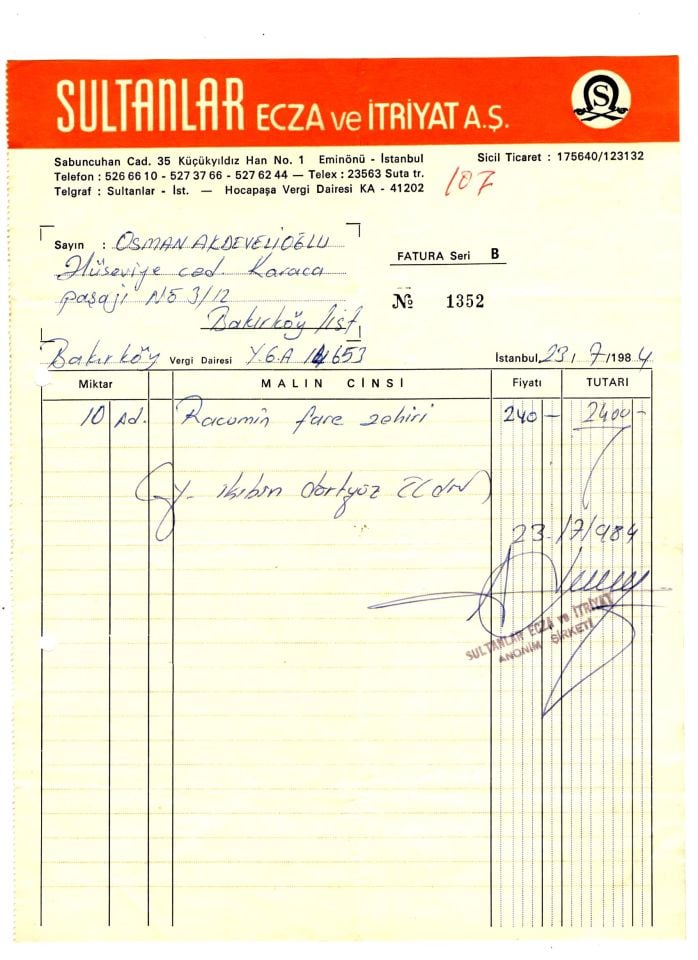 SULTANLAR ECZA ve İTRİYAT A.Ş.
S
Sabuncuhan Cad. 35 Küçükyıldız Han No. 1 Eminönü - İstanbul
Sicil Ticaret : 175640/123132
Telefon : 526 66 10 - 527 37 66 - 527 62 44 — Telex : 23563 Suta tr.
Telgraf : Sultanlar - İst. — Hocapaşa Vergi Dairesi KA - 41202
107
Sayın : OSMAN AKDEVELİOĞLU
Hüseviye cad. Karaca
paşajı No 3/12
Bakırköy /ist
FATURA Seri B
№ 1352
Bakırköy Vergi Dairesi Y.G.A 653
İstanbul, 23 / 7 / 1984
Miktar MALIN CİNSİ Fiyatı TUTARI
10 Ad. Racumin fare zehiri 240 — 2400 —
Y. ikibin dörtyüz
23/7/984
SULTANLAR ECZA ve İTRİYAT
ANONİM ŞİRKETİ